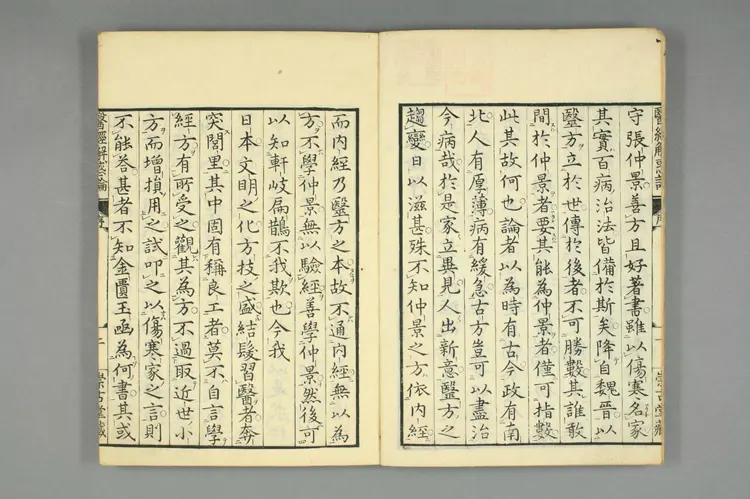 醫經解惑論
序
守張仲景善方且好著書雖以傷寒名家
其實百病治法皆備於斯矣降自魏晉以
毉方立於世傳於後者不可勝數其誰敢
間於仲景者要其能為仲景者僅可指數
此其故何也論者以為時有古今政有南
北人有厚薄病有緩急古方豈可以盡治
今病哉於是家立異見人出新意毉方之
趨變日以滋甚殊不知仲景之方依內經
而內經乃毉方之本故不通內經無以為
方不學仲景無以驗經善學仲景然後可
以知軒岐扁鵲不我欺也今我
日本文明之化方技之盛結髮習醫者奔
突閭里其中固有稱良工者莫不自言學
經方有所受之觀其為方不過取近世小
方而增損用之試叩之以傷寒家之言則
不能答甚者不知金匱玉函為何書其或
醫經解惑論
序
二
崇古堂藏